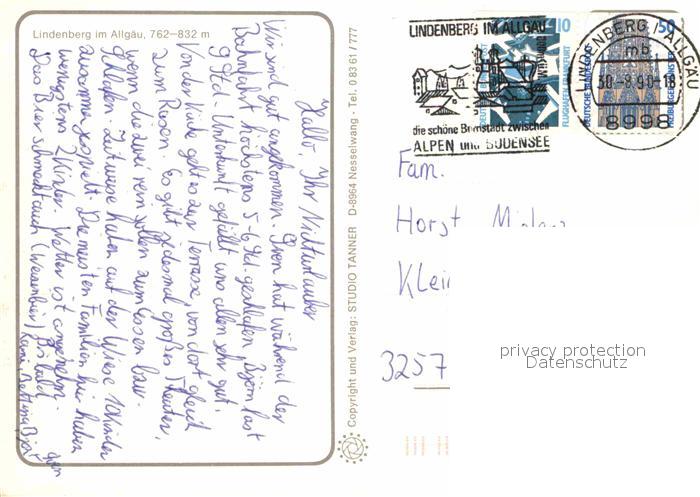 Lindenberg im Allgäu, 762–832 m
Hallo, Ihr Nichturlauber
Wir sind gut angekommen. Sven hat während der
Bahnfahrt höchstens 5-6 Std. geschlafen, Björn fast
9 Std. Unterkunft gefällt uns allen sehr gut.
Von der Küche geht es zur Terrasse, von dort gleich
zum Rasen. Es gibt jedesmal großes Theater,
wenn die zwei rein sollen zum Essen bzw.
Schlafen. Zeitweise haben auf der Wiese 10 Kinder
zusammen gespielt. Die meisten Familien hier haben
wenigstens 2 Kinder. Wetter ist angenehm.
Das Bier schmeckt auch (Weizenbier) Bis bald
Bettina, Björn
Copyright und Verlag: STUDIO TANNER D-8964 Nesselwang · Tel. 0 83 61 / 777
LINDENBERG IM ALLGÄU
die schöne Bergstadt zwischen
ALPEN und BODENSEE
10
FLUGHAFEN FRANKFURT
DEUTSCHE BUNDESPOST
50
LINDENBERG / ALLGÄU
mb
30.-8.90-18
8998
Fam.
Horst
Klei
3257
privacy protection
Datenschutz